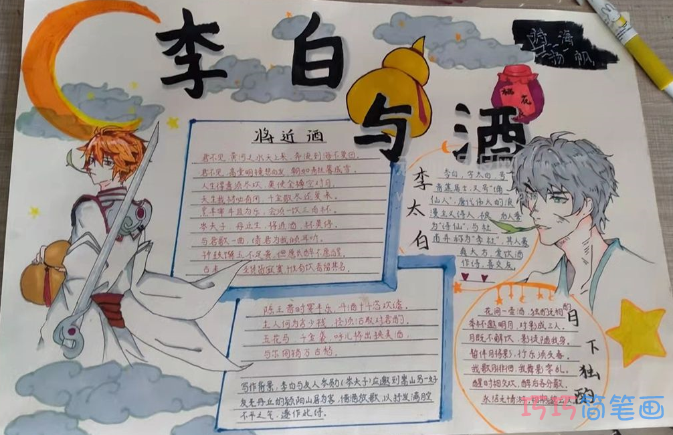 李白与酒
诗酒
桃花
将近酒
君不见黄河之水天上来,奔流到海不复回。
君不见高堂明镜悲白发,朝如青丝暮成雪。
人生得意须尽欢,莫使金樽空对月。
天生我材必有用,千金散尽还复来。
烹羊宰牛且为乐,会须一饮三百杯。
岑夫子,丹丘生,将进酒,杯莫停。
与君歌一曲,请君为我倾耳听。
钟鼓馔玉不足贵,但愿长醉不愿醒。
古来圣贤皆寂寞,惟有饮者留其名。
陈王昔时宴平乐,斗酒十千恣欢谑。
主人何为言少钱,径须沽取对君酌。
五花马,千金裘,呼儿将出换美酒,
与尔同销万古愁。
写作背景:李白与友人岑勋(岑夫子)应邀到嵩山另一好
友元丹丘的颍阳山居为客,借酒放歌,以抒发满腔
不平之气,遂作此诗。
李太白
李白,字太白,号
青莲居士,又号“谪
仙人”,唐代伟大的浪
漫主义诗人,被后人誉
为“诗仙”,与杜
甫并称为“李杜”,其人爽
朗大方,爱饮酒
作诗,喜交友。
月下独酌
花间一壶酒,独酌无相亲
举杯邀明月,对影成三人。
月既不解饮,影徒随我身。
暂伴月将影,行乐须及春。
我歌月徘徊,我舞影零乱。
醒时相交欢,醉后各分散。
永结无情游,
巧巧简笔画